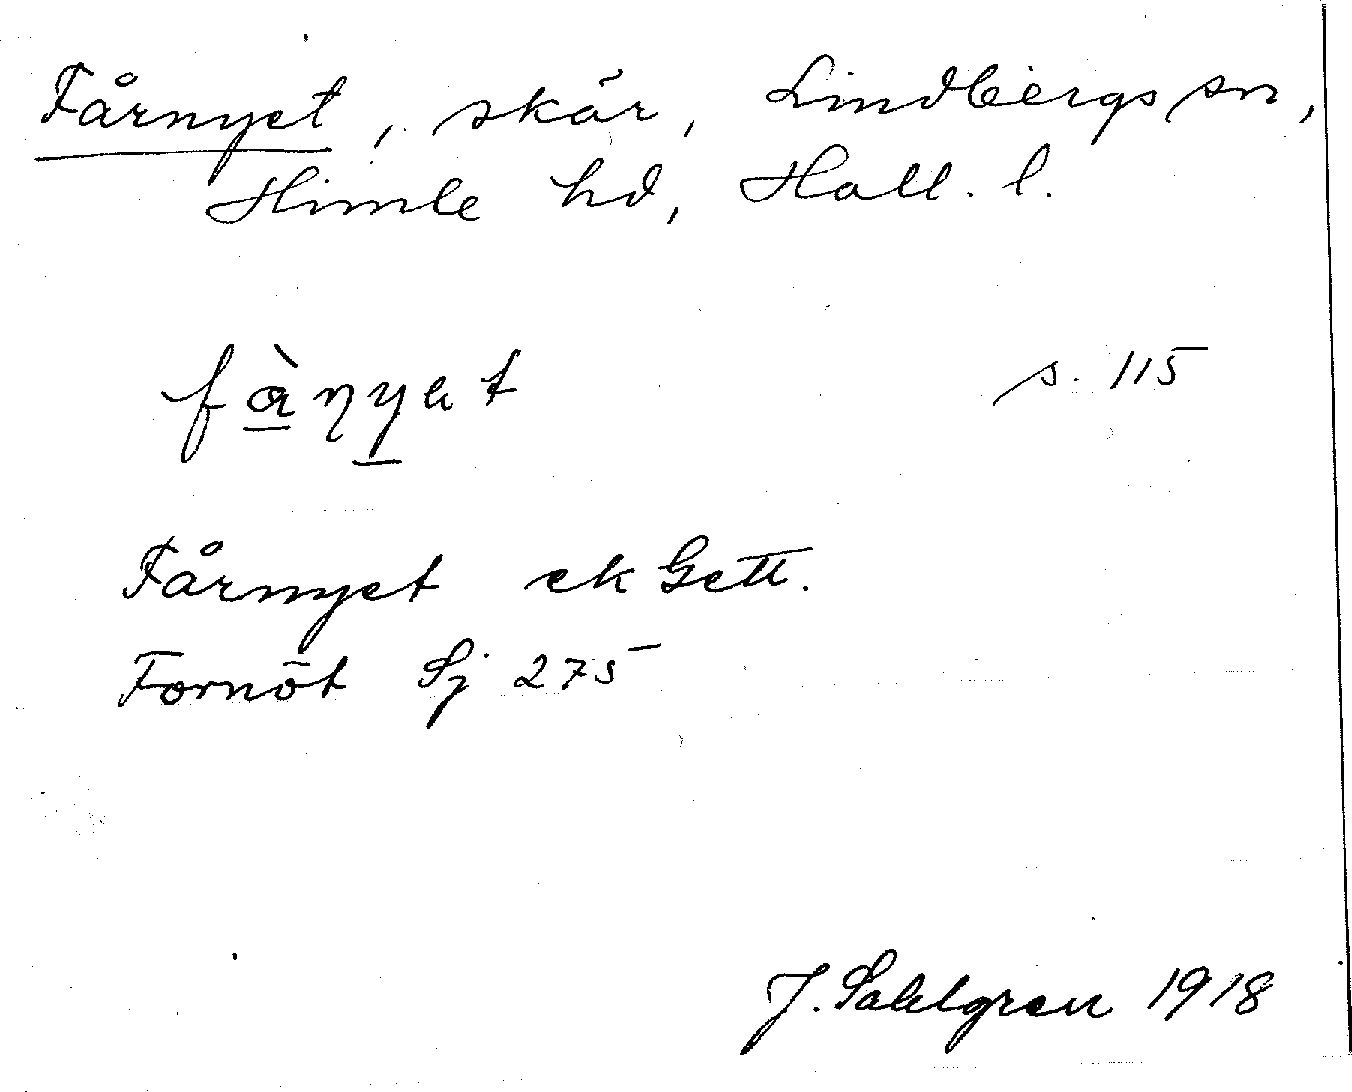 Fårnyet, skär, Lindbergs sn,
Himle hd, Hall. l.
fànyet s. 115
Fårnyet ek Gett.
Fornöt Sj 275
J. Sahlgren 1918